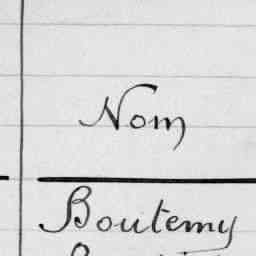 Nom
Boutemy